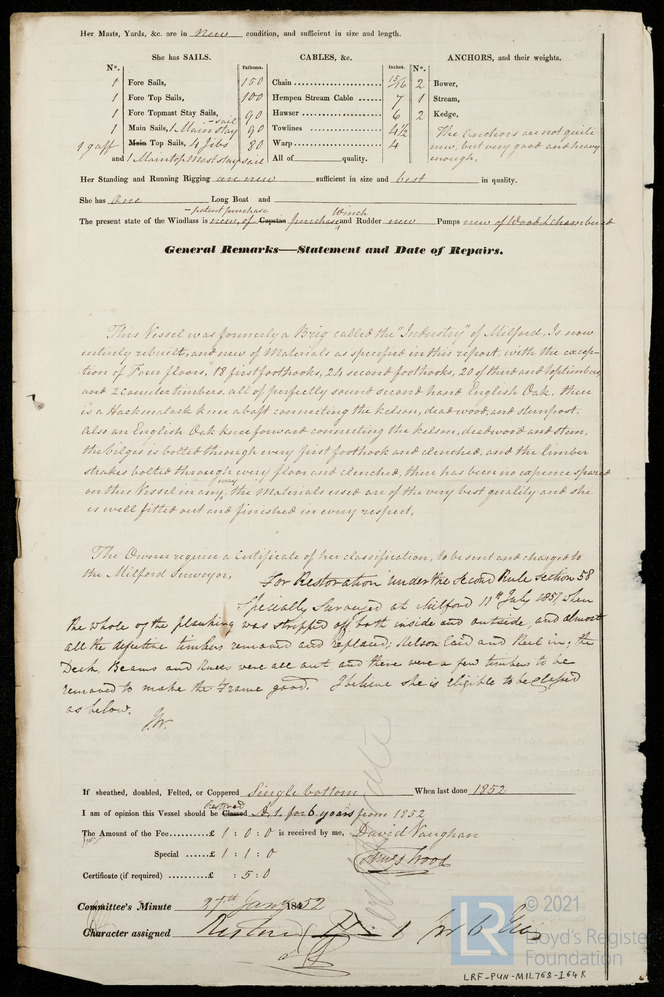 Her Masts, Yards, &c. are in new condition, and sufficient in size and length.
She has SAILS. CABLES, &c. ANCHORS, and their weights.
N°. Fathoms. Inches. N°.
1 Fore Sails, 150 Chain 15/16 2 Bower,
1 Fore Top Sails, 100 Hempen Stream Cable 7 1 Stream,
1 Fore Topmast Stay Sails, 90 Hawser 6 2 Kedge,
1 Main Sails, 1 Main stay sail 90 Towlines 4½ The anchors are not quite
1 gaff Main Top Sails, 4 Jibs 80 Warp 4 new, but very good and heavy
and 1 Maintopmast stay sail All of quality. enough.
Her Standing and Running Rigging are new sufficient in size and best in quality.
She has One Long Boat and
- patent purchase Winch
The present state of the Windlass is new, of Capstan purchase and Rudder new Pumps new of Wood & chambered
General Remarks—Statement and Date of Repairs.
This Vessel was formerly a Brig called the "Industry" of Milford, Is now
entirely rebuilt, and new of Materials as specified in this report, with the excep-
tion of Four floors, 18 first foothooks, 24 second foothooks, 20 of third and toptimbers
and 2 countertimbers, all of perfectly sound second hand English Oak, there
is a Hackmatack knee abaft connecting the kelson, deadwood, and sternpost.
Also an English Oak knee forward connecting the kelson, deadwood and stem,
the bilges is bolted through every first foothook and clenched, and the limber
strakes bolted through every floor and clenched, there has been no expence spared
on this Vessel in any way, the Materials used are of the very best quality and she
is well fitted out and finished in every respect,
The Owner require a Certificate of her classification, to be sent and charged to
the Milford Surveyor,
For Restoration under the Second Rule Section 58
Specially Surveyed at Milford 11th July 1851 when
the whole of the planking was stripped off both inside and outside, and almost
all the defective timbers removed and replaced; Kelson laid and Keel in; the
Deck, Beams and Knees were all out and there were a few timbers to be
removed to make the Frame good. I believe she is eligible to be classed
as below.
If sheathed, doubled, Felted, or Coppered Single bottom When last done 1852
Restored
I am of opinion this Vessel should be Classed A. 1. for 6 years from 1852
The Amount of the Fee £ 1 : 0 : 0 is received by me, David Vaughan
Special £ 1 : 1 : 0 James Wood
Certificate (if required) £ : 5 : 0
Committee's Minute 27th Jany 1852
Character assigned Restored
© 2021
Lloyd's Register
Foundation
LR
LRF-PUN-MIL768-164R